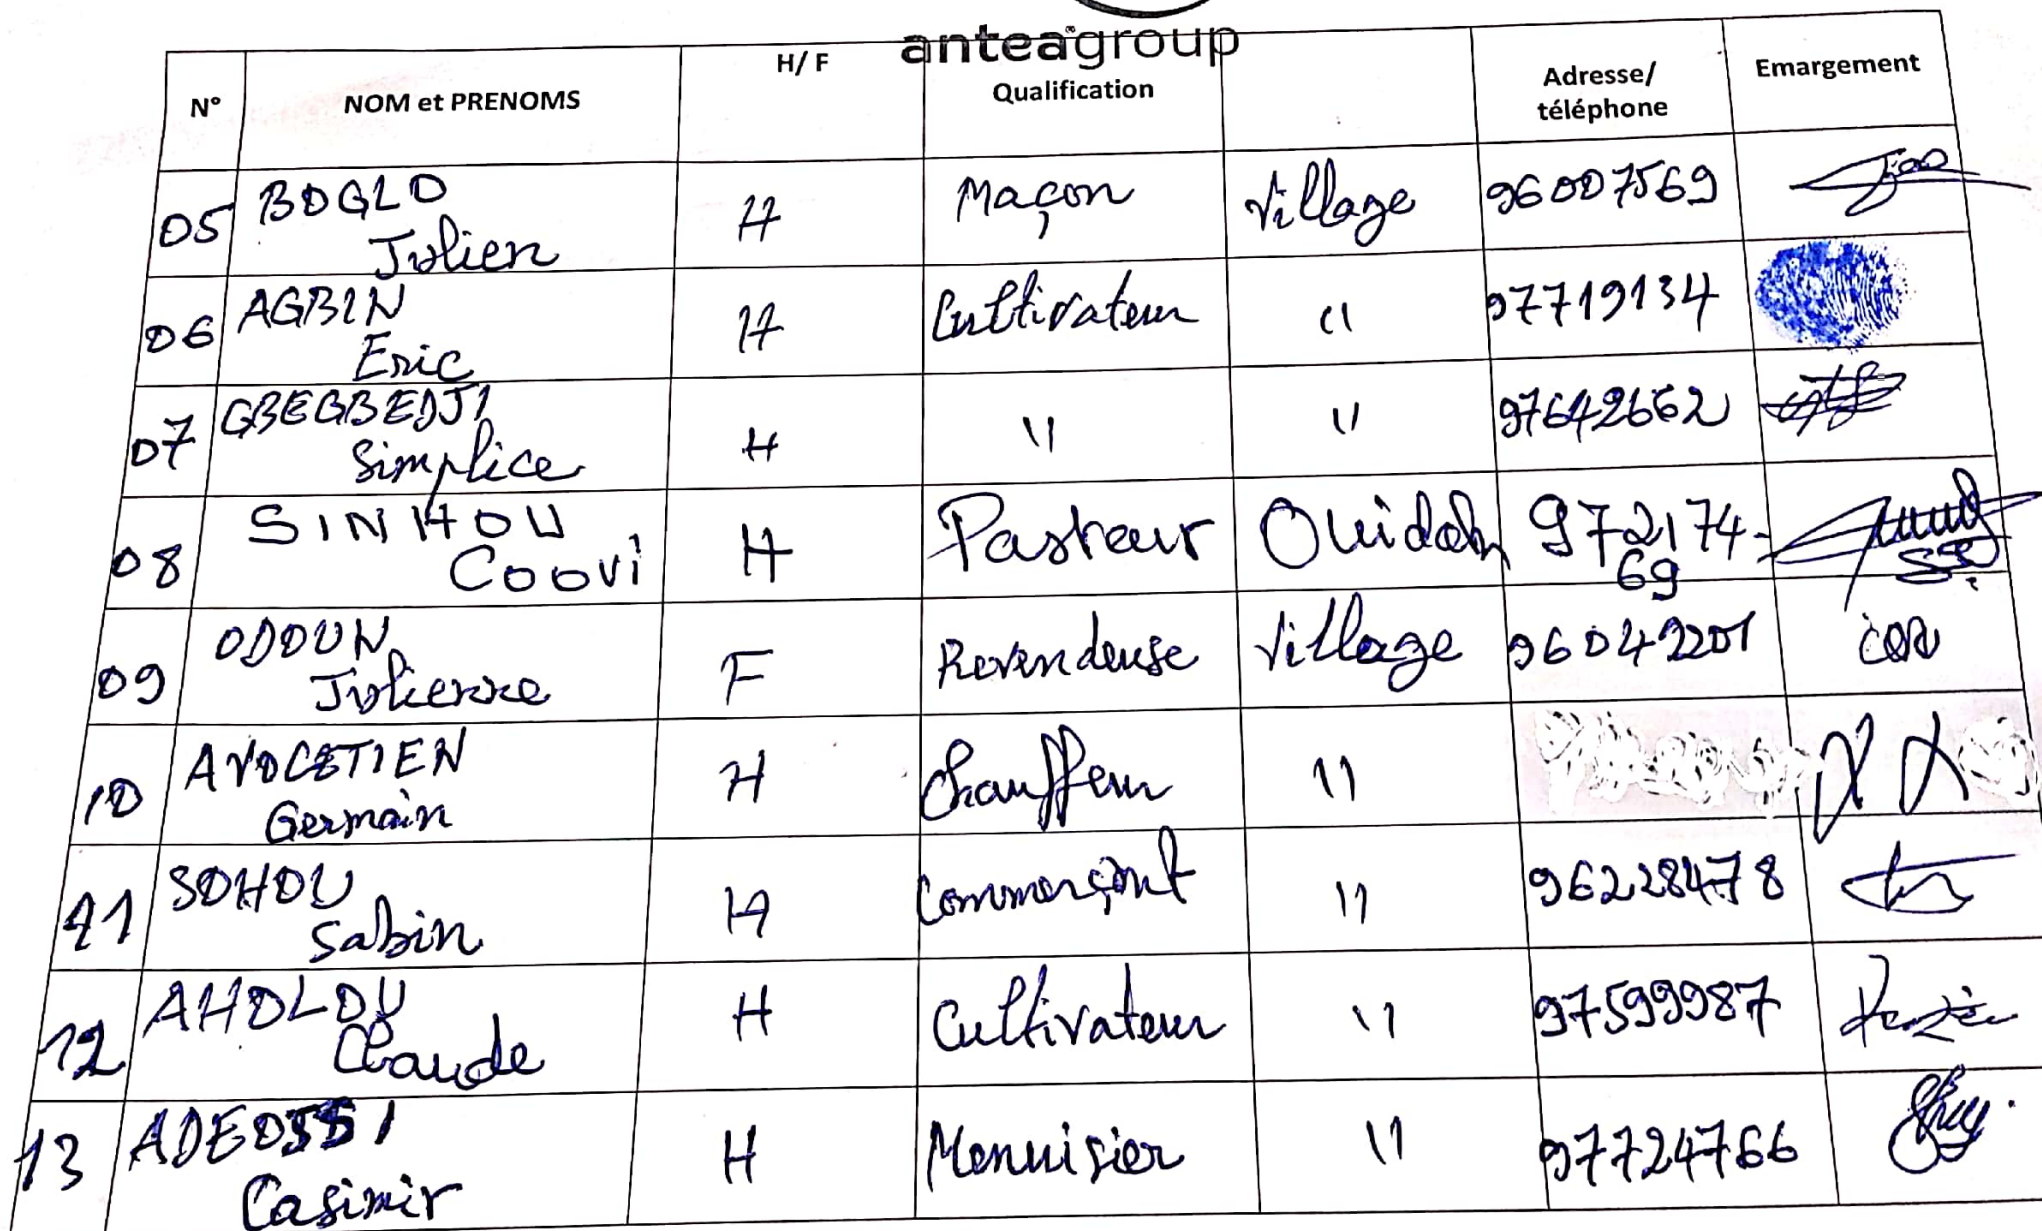 anteagroup
N° NOM et PRENOMS H/ F Qualification Adresse/ téléphone Emargement
05 BOGLO Julien H Maçon Village 96007569
06 AGBIN Eric H Cultivateur " 97719134
07 GBEGBEDJI Simplice H " " 97642662
08 SINHOU Coovi H Pasteur Ouidah 972174-69
09 ODOUN Julienne F Revendeuse Village 96042201
10 AVOCETIEN Germain H Chauffeur "
11 SOHOU Sabin H Commerçant " 96228478
12 AHOLOU Claude H Cultivateur " 97599987
13 Casimir H Menuisier " 97724766